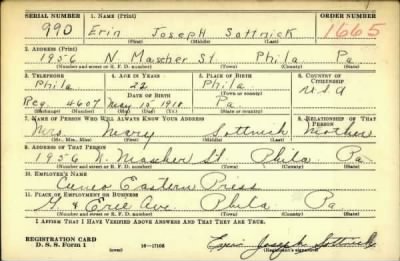 SERIAL NUMBER 1. NAME (Print) ORDER NUMBER
990 Erin Joseph Sottnick 1665
(First) (Middle) (Last)
2. ADDRESS (Print)
1956 N. Mascher St. Phila Pa
(Number and street or R. F. D. number) (Town) (County) (State)
3. TELEPHONE 4. AGE IN YEARS 5. PLACE OF BIRTH 6. COUNTRY OF CITIZENSHIP
Phila 22 Phila
DATE OF BIRTH (Town or county) U.S.A
Reg. 4607 May 15 1918 Pa
(Exchange) (Number) (Mo.) (Day) (Yr.) (State or country)
7. NAME OF PERSON WHO WILL ALWAYS KNOW YOUR ADDRESS 8. RELATIONSHIP OF THAT PERSON
Mrs. Mary Sottnick Mother
(Mr., Mrs., Miss) (First) (Middle) (Last)
9. ADDRESS OF THAT PERSON
1956 N. Mascher St. Phila. Pa.
(Number and street or R. F. D. number) (Town) (County) (State)
10. EMPLOYER'S NAME
Cuneo Eastern Press
11. PLACE OF EMPLOYMENT OR BUSINESS
G & Erie Ave. Phila Pa
(Number and street or R. F. D. number) (Town) (County) (State)
I AFFIRM THAT I HAVE VERIFIED ABOVE ANSWERS AND THAT THEY ARE TRUE.
REGISTRATION CARD
D. S. S. Form 1 (over) 16—17105 Joseph Sottnick
(Registrant's signature)